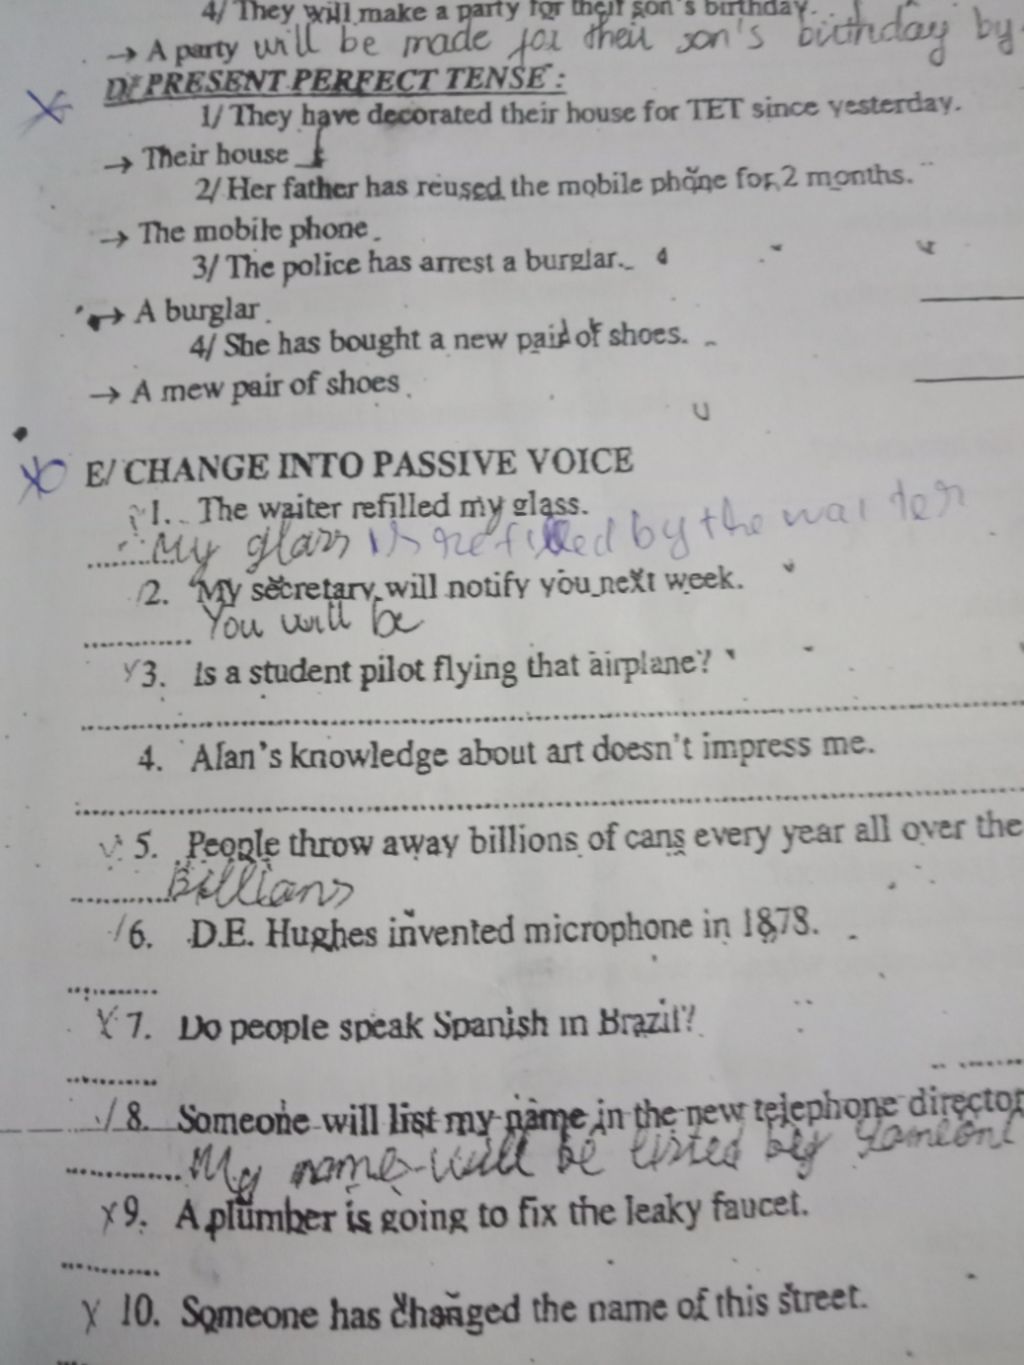 4/ They will make a party for their son's birthday.
→ A party will be made for their son's birthday by
D/ PRESENT PERFECT TENSE :
1/ They have decorated their house for TET since yesterday.
→ Their house
2/ Her father has reused the mobile phone for 2 months.
→ The mobile phone
3/ The police has arrest a burglar.
→ A burglar
4/ She has bought a new pair of shoes.
→ A mew pair of shoes
E/ CHANGE INTO PASSIVE VOICE
1. The waiter refilled my glass.
My glass is refilled by the waiter
2. My secretary will notify you next week.
You will be
3. Is a student pilot flying that airplane?
4. Alan's knowledge about art doesn't impress me.
5. People throw away billions of cans every year all over the
Billians
6. D.E. Hughes invented microphone in 1878.
7. Do people speak Spanish in Brazil?
8. Someone will list my name in the new telephone director
My name will be listed by someone
9. A plumber is going to fix the leaky faucet.
10. Someone has changed the name of this street.